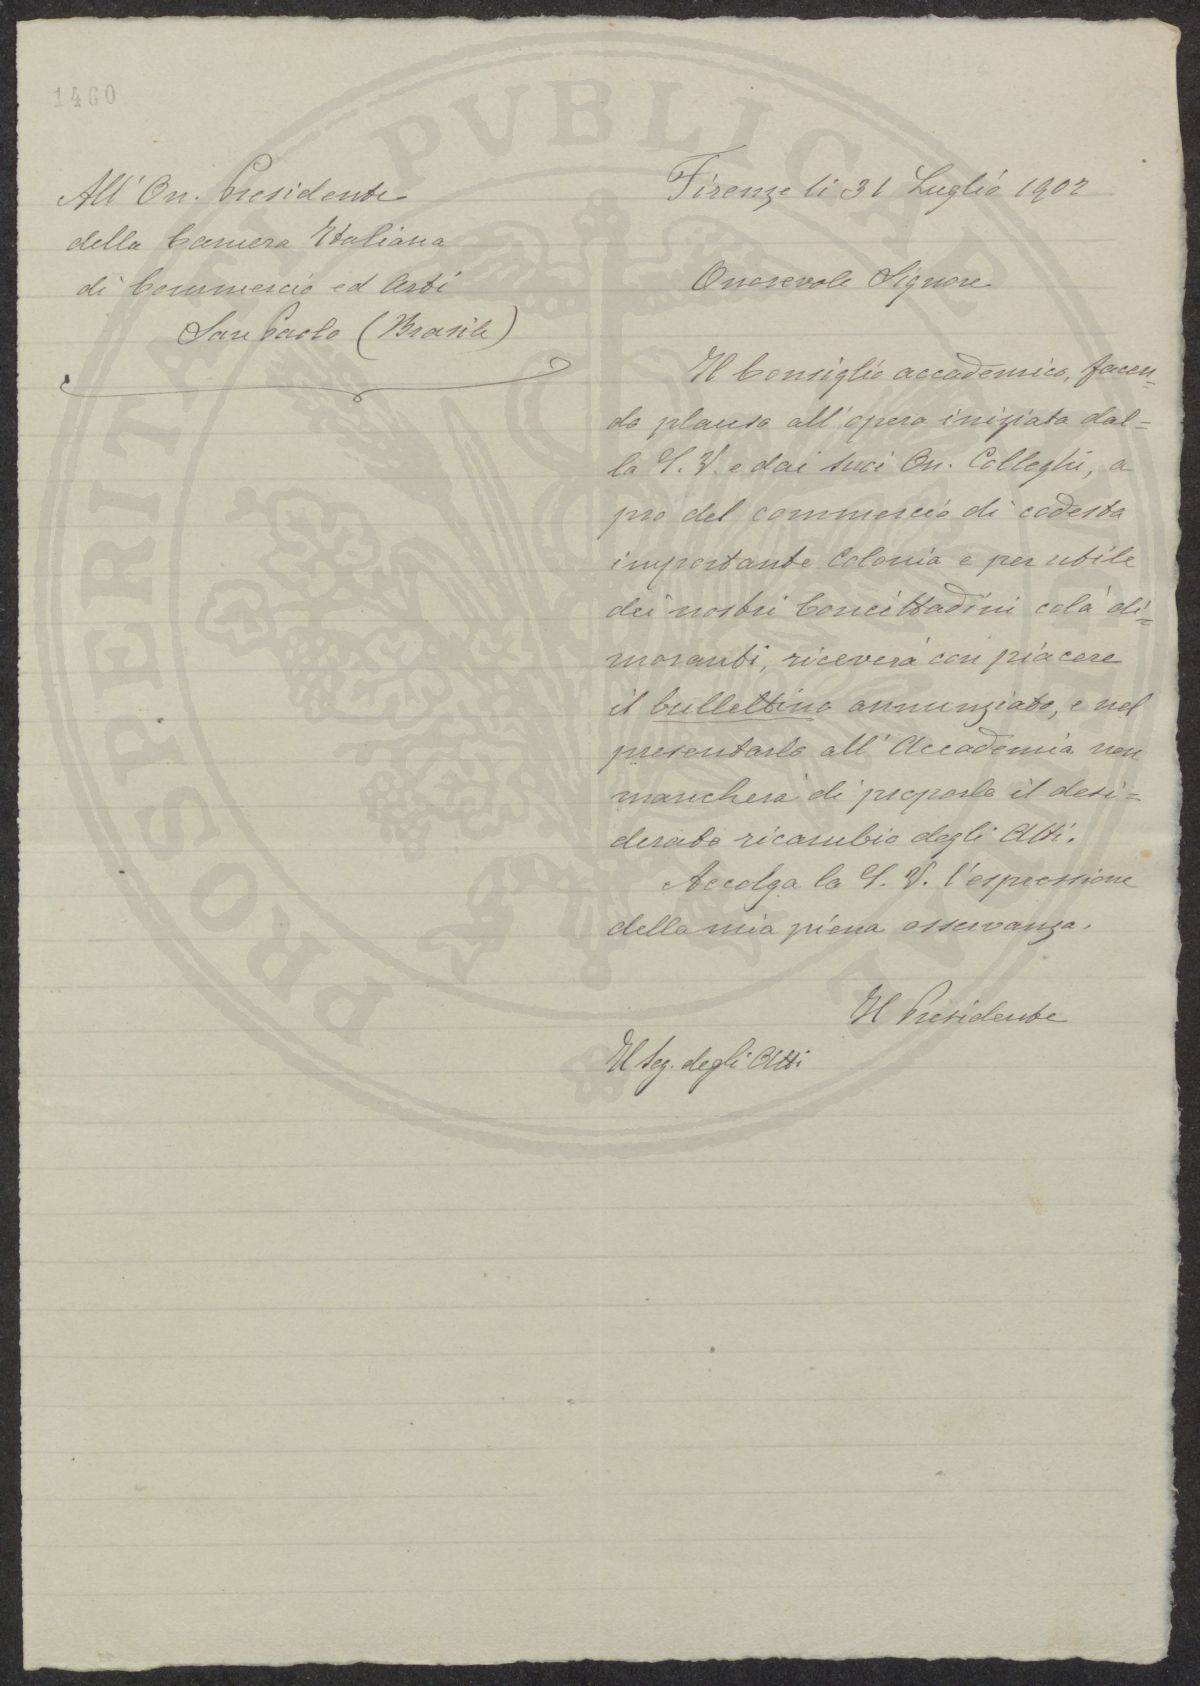 1460
All' On. Presidente
della Camera Italiana
di Commercio ed Arti
San Paolo (Brasile)
Firenze li 31 Luglio 1902
Onorevole Signore
Il Consiglio accademico, facen=
do plauso all'opera iniziata dal=
la S. V. e dai suoi On. Colleghi, a
pro del commercio di codesta
importante Colonia e per utile
dei nostri Concittadini colà di=
moranti, riceverà con piacere
il bullettino annunziato, e nel
presentarlo all'Accademia non
mancherà di proporle il desi=
derato ricambio degli Atti.
Accolga la S. V. l'espressione
della mia piena osservanza.
Il Presidente
Il Seg. degli Atti
PROSPERITATI PVBLICAE